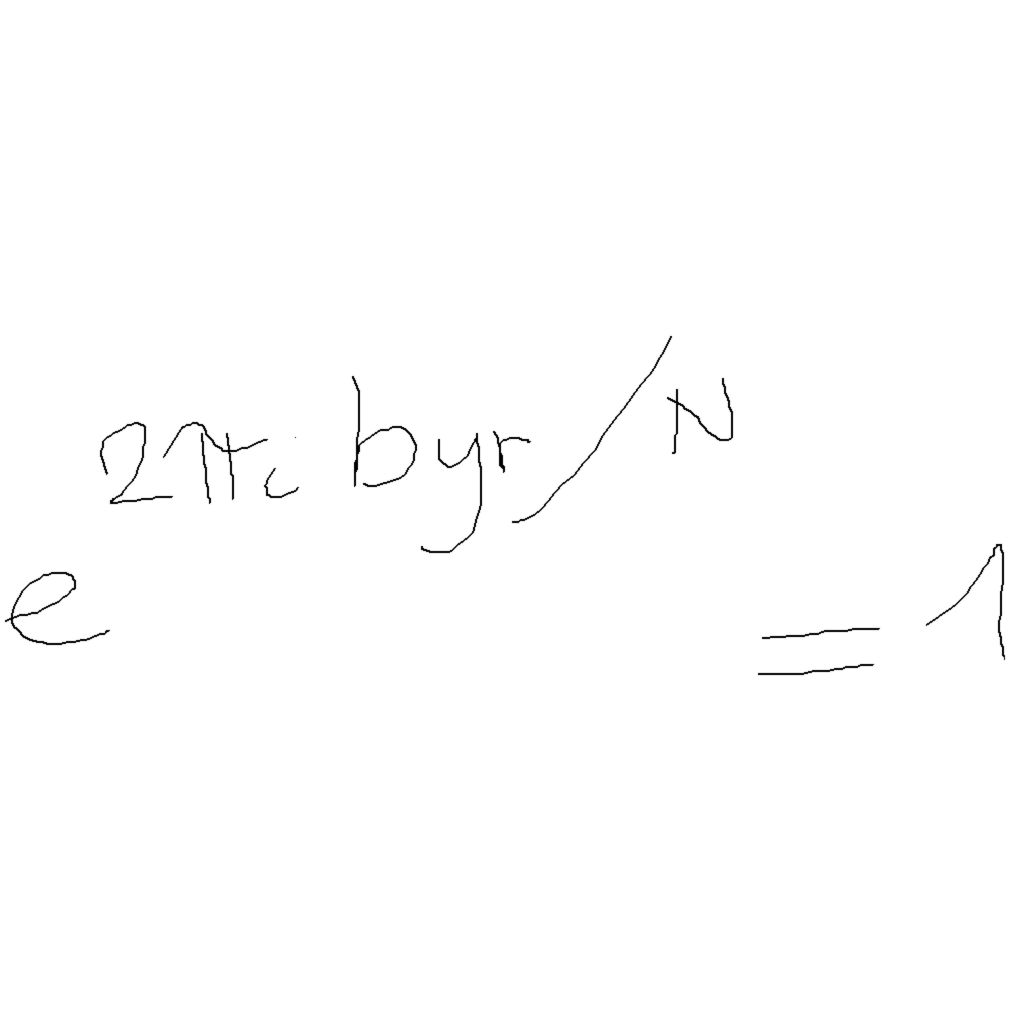 e^2πi byr/N = 1